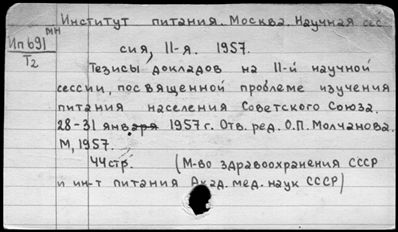 Институт питания. Москва. Научная сес-
мн
Ип691
Т2
сия, II-я. 1957.
Тезисы докладов на II-й научной
сессии, посвященной проблеме изучения
питания населения Советского Союза.
28-31 января 1957 г. Отв. ред. О.П. Молчанова.
М, 1957.
44 стр. (М-во здравоохранения СССР
и ин-т питания Акад. мед. наук СССР)